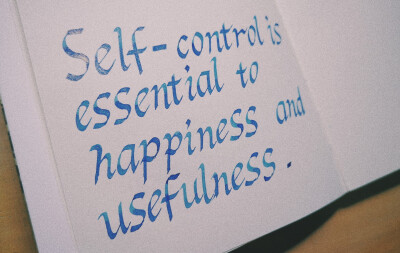 Self-control is
essential to
happiness and
usefulness.